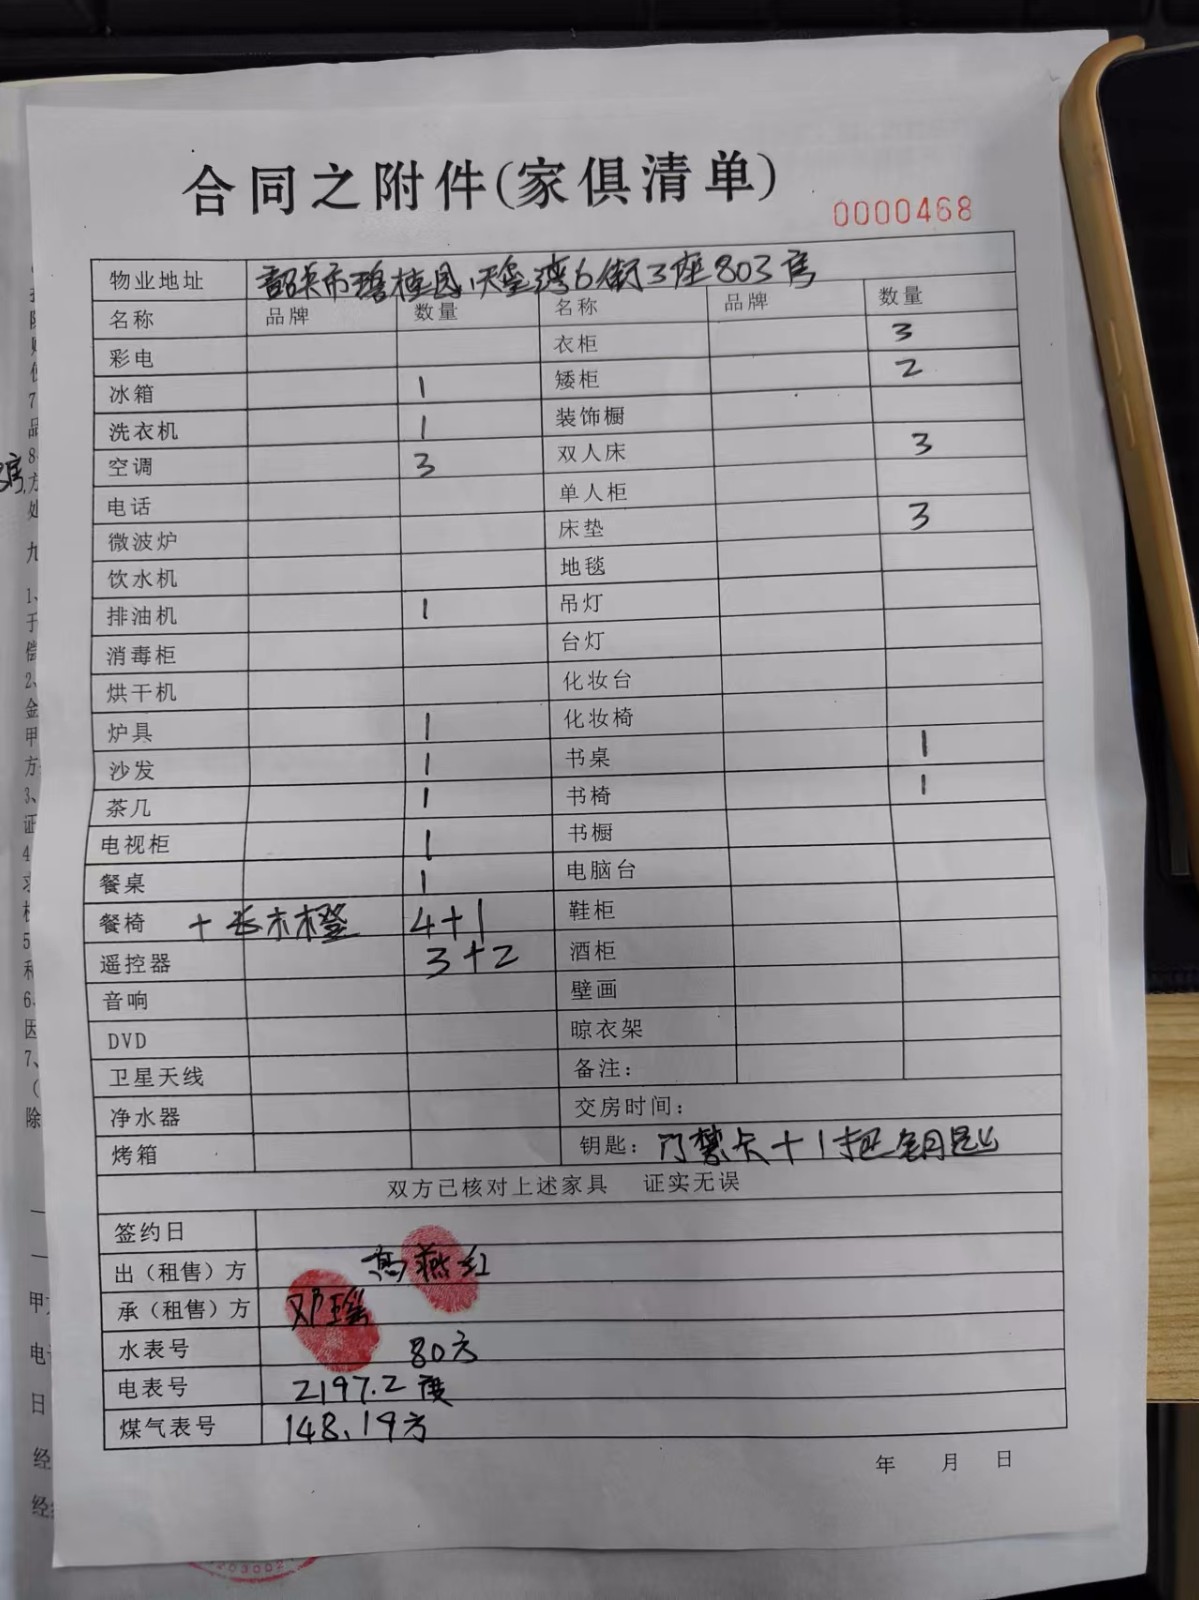 合同之附件(家俱清单)
0000468
物业地址 韶关市碧桂园天玺湾6街3座803房
名称 品牌 数量 名称 品牌 数量
彩电 衣柜 3
冰箱 1 矮柜 2
洗衣机 1 装饰橱
空调 3 双人床 3
电话 单人柜
微波炉 床垫 3
饮水机 地毯
排油机 1 吊灯
消毒柜 台灯
烘干机 化妆台
炉具 1 化妆椅
沙发 1 书桌 1
茶几 1 书椅 1
电视柜 1 书橱
餐桌 1 电脑台
餐椅 +长木橙 4+1 鞋柜
遥控器 3+2 酒柜
音响 壁画
DVD 晾衣架
卫星天线 备注:
净水器 交房时间:
烤箱 钥匙: 门禁卡+1把钥匙
双方已核对上述家具 证实无误
签约日
出（租售）方 高燕红
承（租售）方 邓瑶
水表号 80方
电表号 2197.2度
煤气表号 148.19方
年 月 日